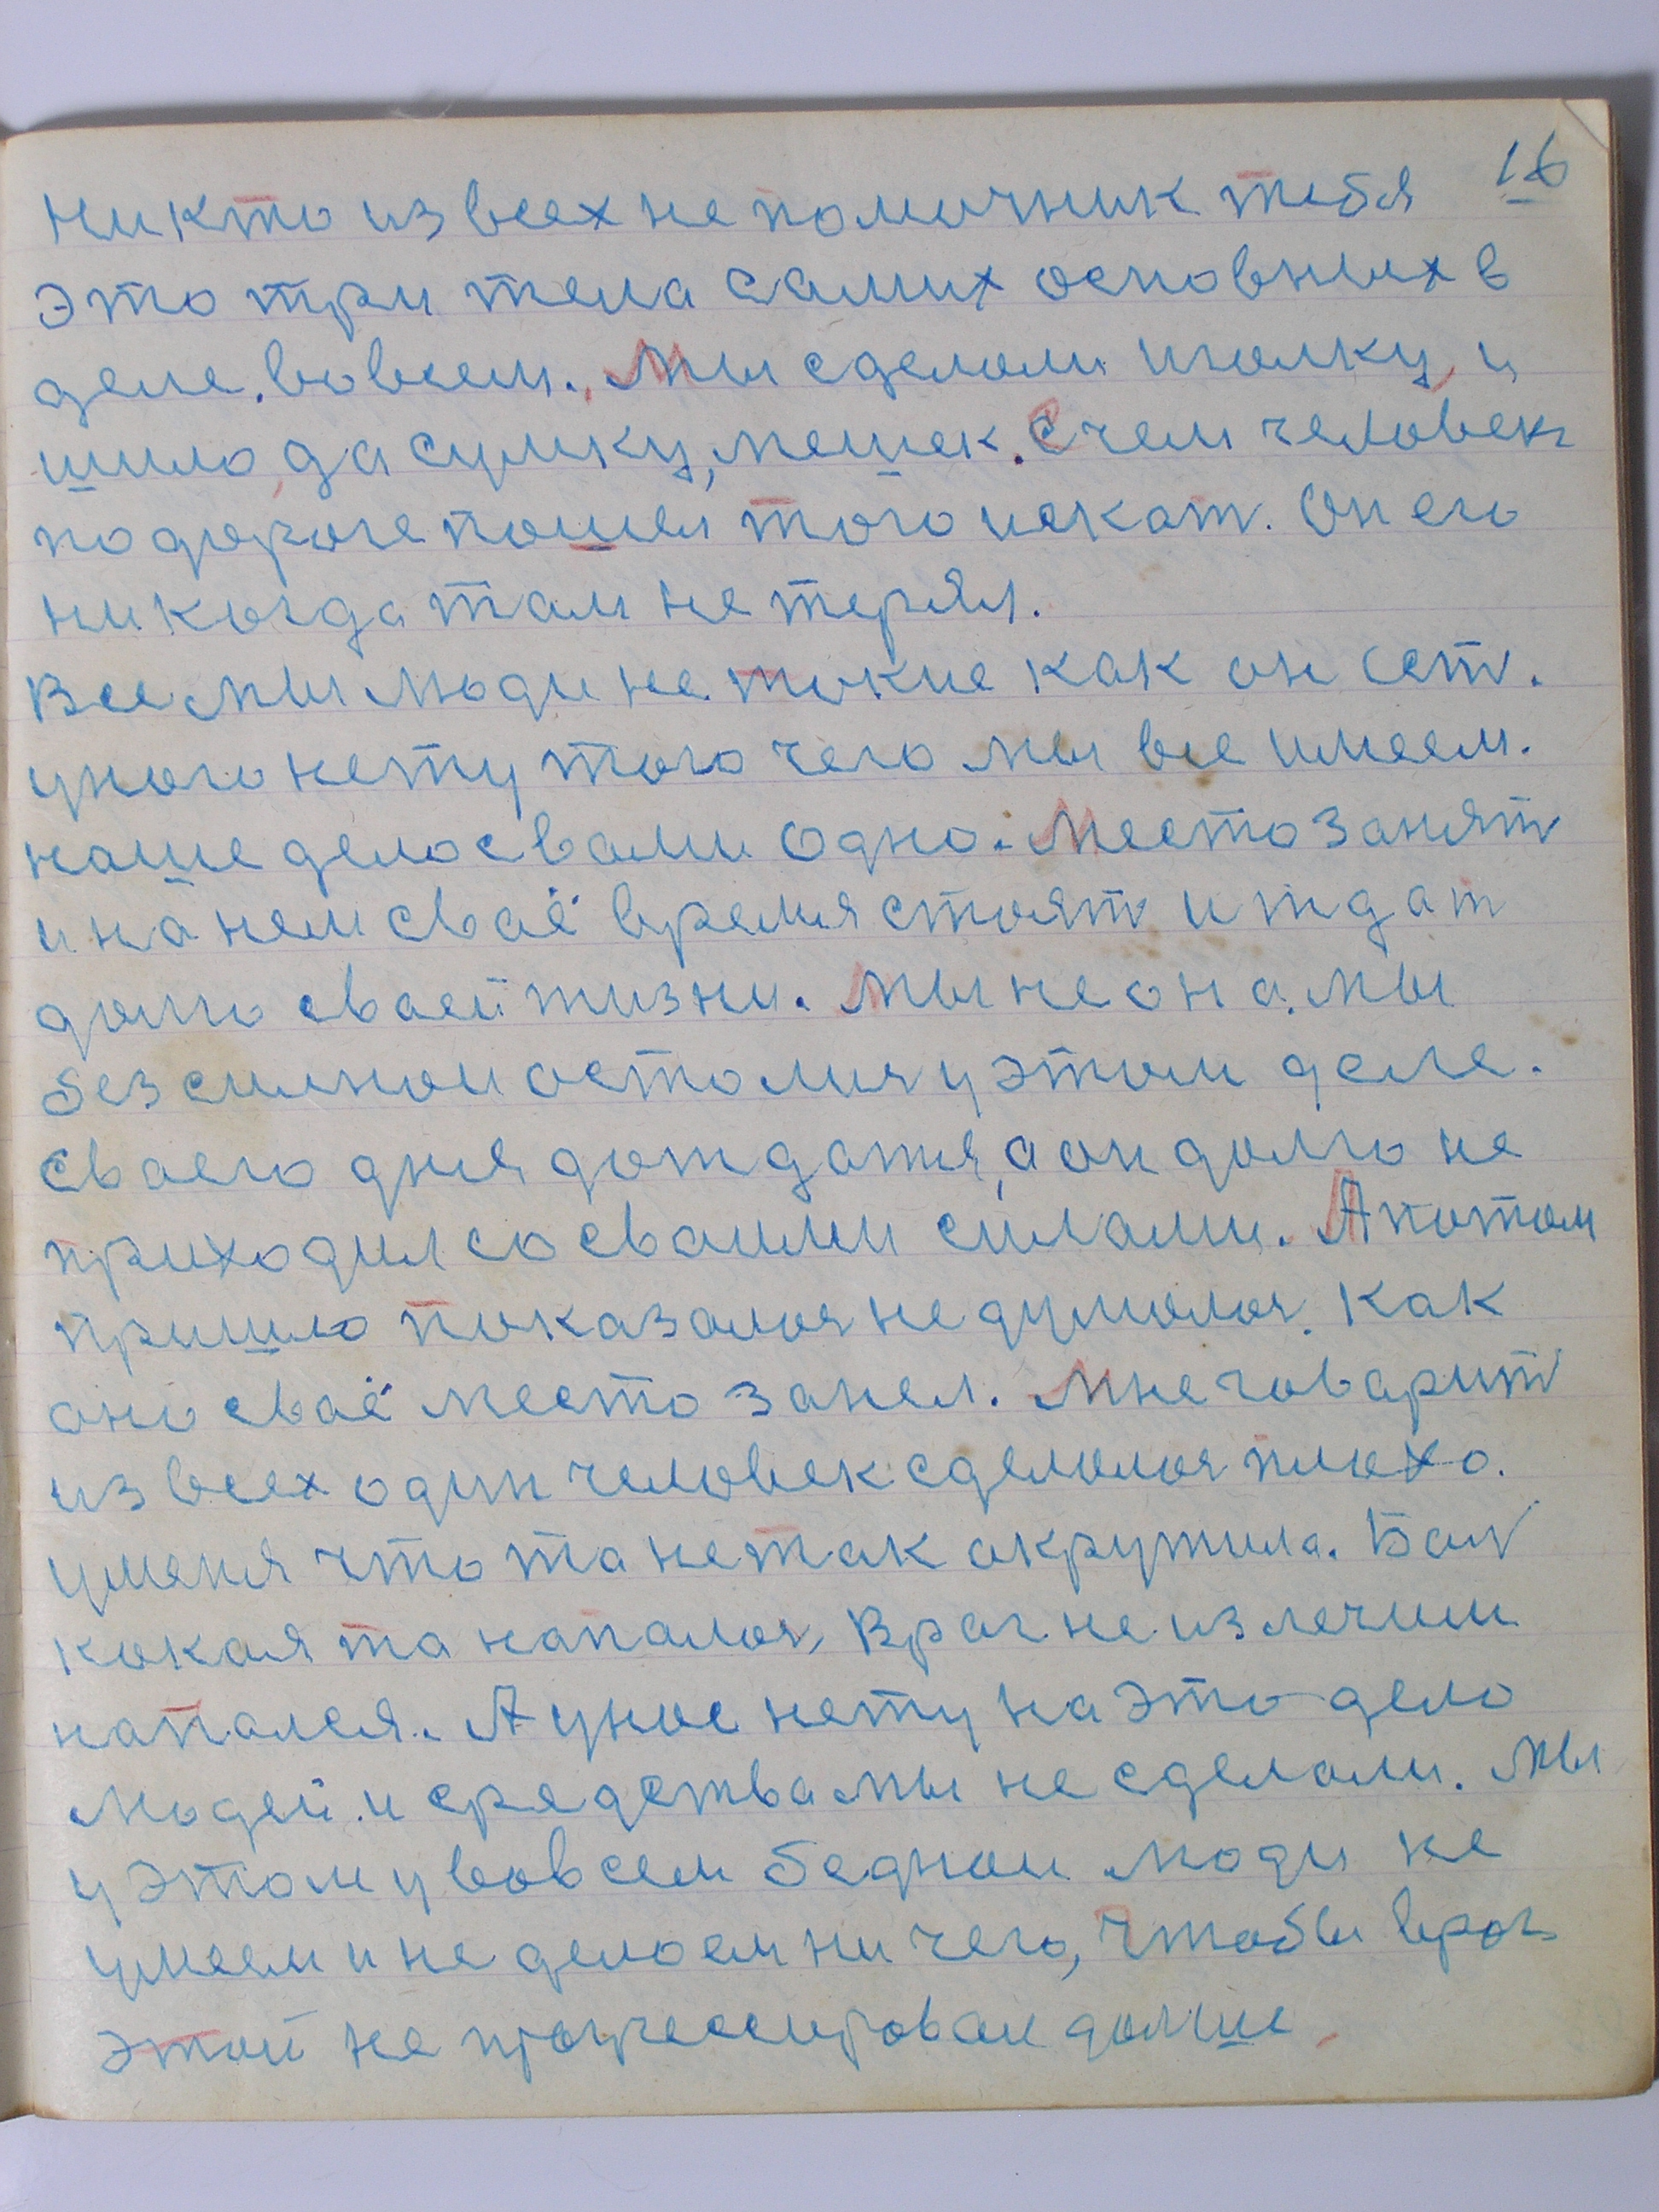 16
никто из всех не помочник тебя
это три тела самих основних в
деле. во всем. Мы сделоли иголку, и
шило, да сумку, мешек. С чем человек
по дороге пошел того искат. Он его
никогда там не терял.
Все мы люди не токие как он ест.
у ного нету того чего мы все имеем.
наше дело с вами одно. Место занят
и на нем сваё время стоят и ждат
долго сваей жизни. Мы не она. мы
без силнои остолися у этом деле.
Сваего дня дождатся, а он долго не
приходил со сваими силами. А потом
пришло показалося не думолося. Как
оно сваё место занел. Мне говарит
из всех один человек сделолося плохо.
у меня что та не так окружила. Бол
кокая та напалося, Враг не излечим
напался. А у нос нету на это дело
людей. и средства мы не сделоли. Мы
у этом у вовсем беднои люди не
умеем и не делоем ни чего, Чтобы враг
этой не прогрессировал долше